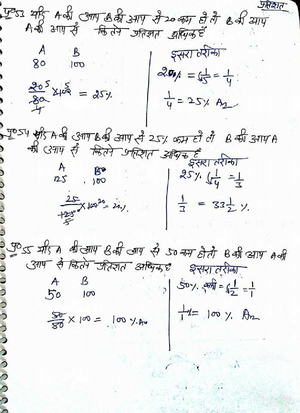 प्रतिशत
प्र० 53 यदि A की आय B की आय से 20% कम हो तो B की आय
A की आय से कितने प्रतिशत अधिक है
A B
80 100
20/80 × 100 = 25%
दूसरा तरीका
20% = 1/5 = 1/4
1/4 = 25% Ans
प्र० 54 यदि A की आय B की आय से 25% कम हो तो B की आय A
की आय से कितने प्रतिशत अधिक है
A B
125 100
25/125 × 100 = 20%
दूसरा तरीका
25% 1/4 = 1/3
1/3 = 33 1/2 %
प्र० 55 यदि A की आय B की आय से 50 कम हो तो B की आय A की
आय से कितने प्रतिशत अधिक है
A B
50 100
50/80 × 100 = 100% Ans
दूसरा तरीका
50% = 1/2 = 1/1
1/1 = 100% Ans